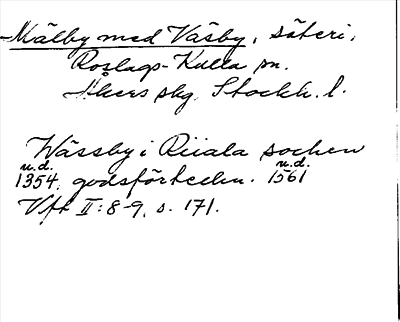 Mälby med Väsby, säteri,
Roslags-Kulla sn.
Åkers skg, Stockh. l.
Wässby i Riiala sochen
u.d. u.d.
1354, godsförteckn. 1561
Vfr II:8-9, s. 171.